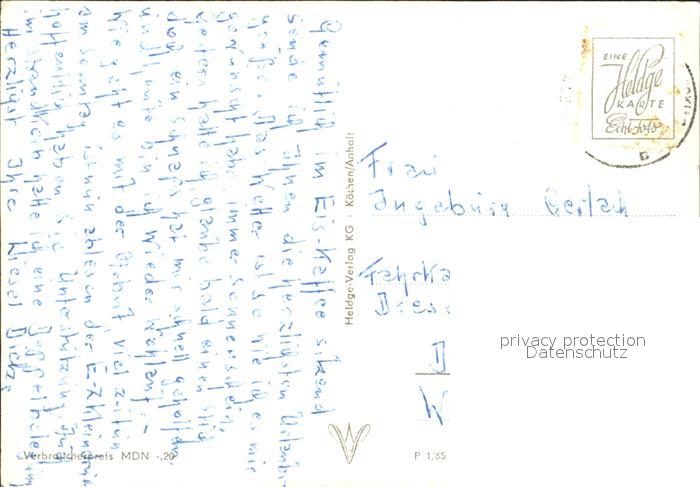 Gemütlich im Eis-Kaffee sitzend
sende ich Ihnen die herzlichsten Urlaubs-
grüße. Das Wetter ist so wie ich es mir
gewünscht habe immer Sonnenschein,
gestern hatte ich glaube bald einen Stich
doch ein Schnaps hat mir schnell geholfen
und heute bin ich wieder wohlauf. -
Wie geht es mit der Arbeit viel zu tun
am Sonntag ist nun ablesen der E-
hoffentlich haben Sie Unterstützung. Auch
im habe ich eine
Herzlichst Ihre Diesel
Heldge-Verlag KG · Köthen/Anhalt
EINE
Heldge
KARTE
Echt Foto
Frau
Ingeburg Gerlach
Fahrka
Dres
D
W
privacy protection
Datenschutz
Verbraucherpreis MDN -,20
P 1/65